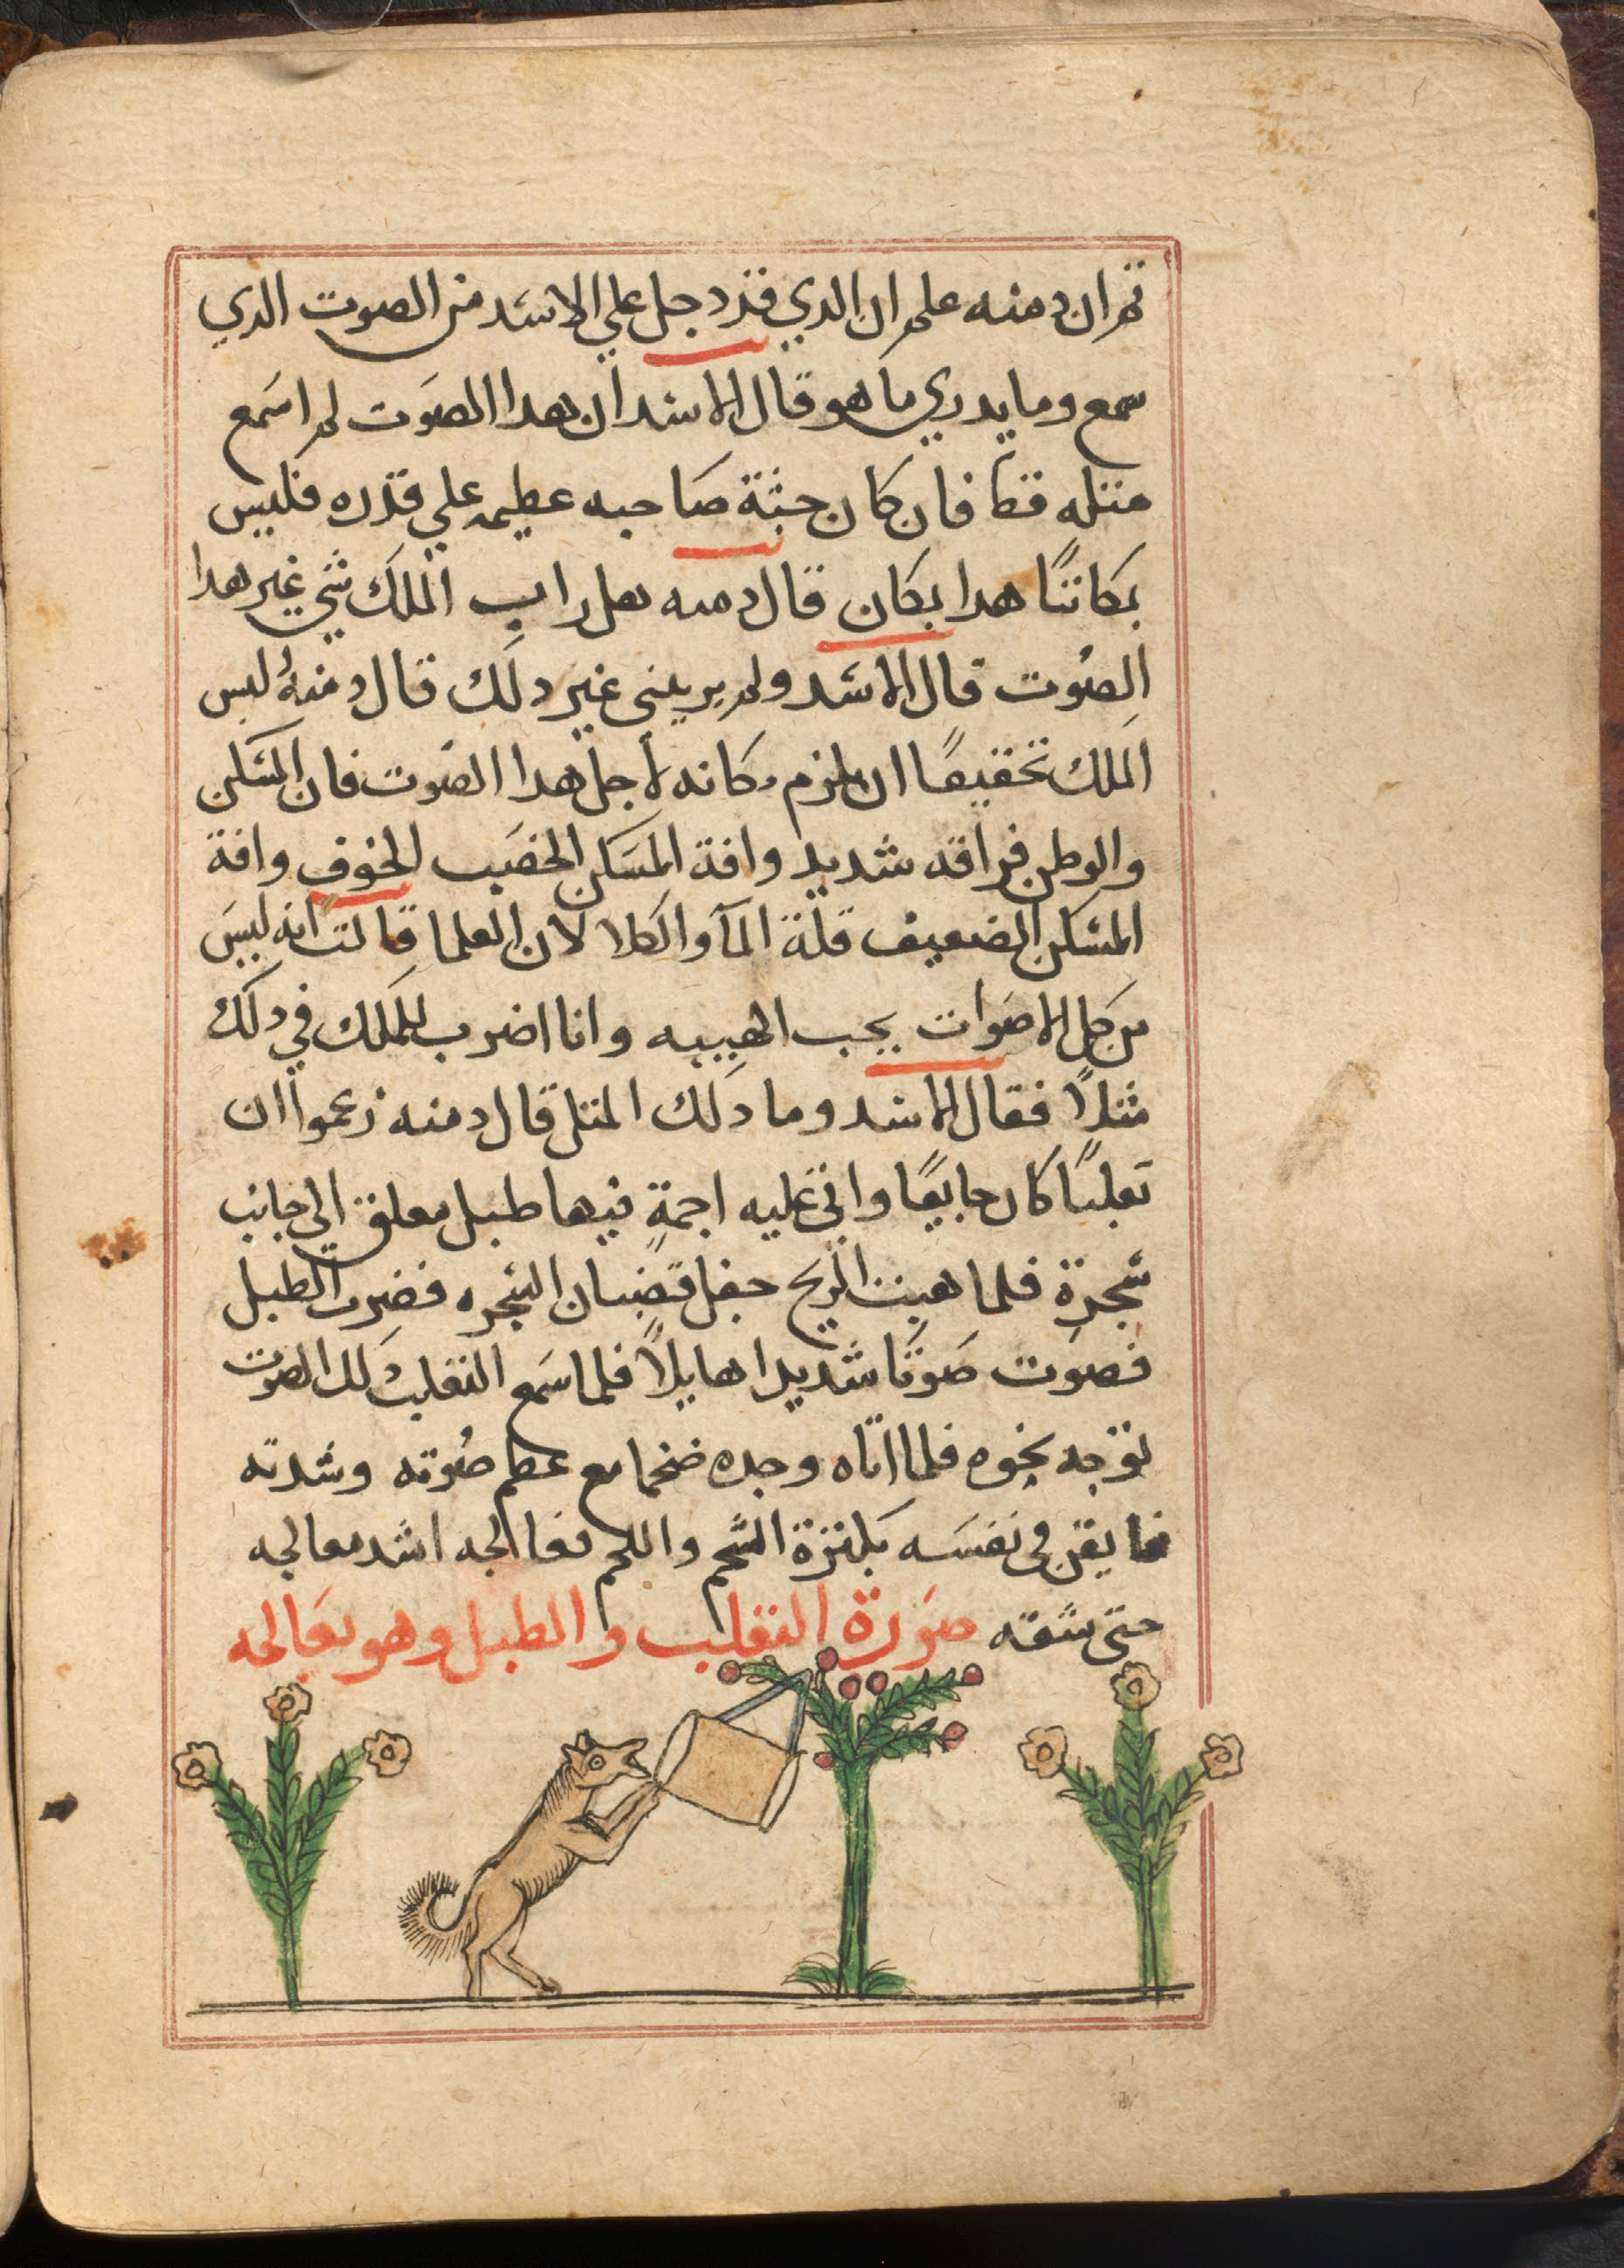 ثم ان دمنه علم ان الدي قد دجل علي الاسد من الصوت الدي
سمع وما يدري ما هو قال الاسد ان هدا الصوت لم اسمع
مثله قط فان كان جثة صاحبه عظيمه علي قدره فليس
بمكاننا هدا بمكان قال دمنه هل راب الملك شي غير هدا
الصوت قال الاسد ولم يريبني غير دلك قال دمنه ليس
الملك تحقيقا ان يلزم مكانه لأجل هدا الصوت فان المسكن
والوطن فراقه شديد وافة المسكن الخصيب الخوف وافة
المسكن الضعيف قلة المآ والكلا لان العلما قالت انه ليس
من كل الاصوات يجب الهيبه وانا اضرب للملك في دلك
مثلاً فقال الاسد وما دلك المثل قال دمنه زعموا ان
تعلبًا كان جايعًا واتي عليه اجمةٍ فيها طبل معلق الي جانب
شجرةٍ فلما هبت الريح جعل قضبان الشجره فضرب الطبل
فصوت صوتًا شديدا هايلاً فلما سمع الثعلب دلك الصوت
توجه نحوه فلما اتاه وجده ضخما مع عظم صوته وشدته
فايقن في نفسه بكثرة الشحم واللحم فعالجه اشد معالجه
حتى شقه صورة الثعلب والطبل وهو يعالجه